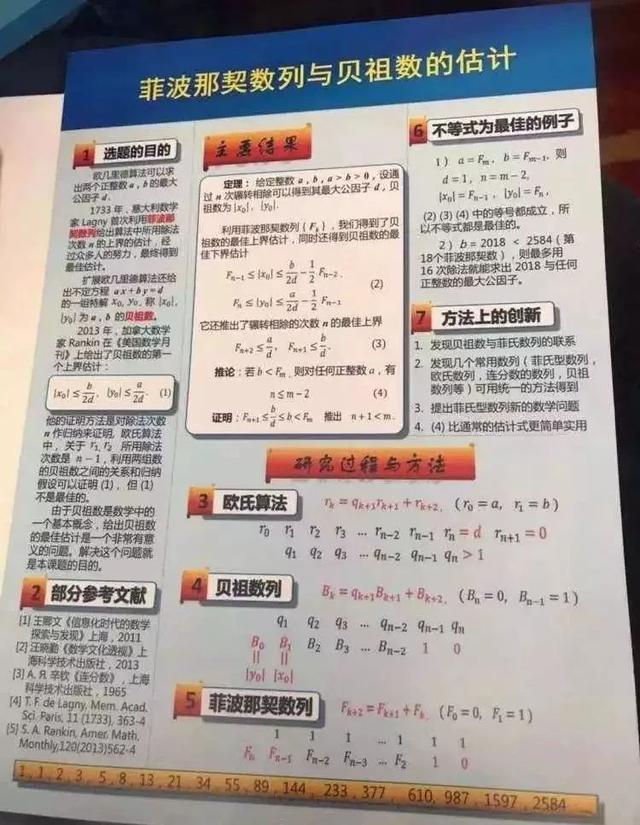 菲波那契数列与贝祖数的估计
1 选题的目的
欧几里德算法可以求
出两个正整数 a , b 的最大
公因子 d .
1733 年，意大利数学
家 Lagny 首次利用菲波那
契数列给出算法中所用除法
次数 n 的上界的估计，经
过众多人的努力，最终得到
最佳估计。
扩展欧几里德算法还给
出不定方程 ax+by=d
的一组特解 x₀, y₀, 称 |x₀|,
|y₀| 为 a , b 的贝祖数。
2013 年，加拿大数学
家 Rankin 在《美国数学月
刊》上给出了贝祖数的第一
个上界估计：
|x₀| ≤ b/2d, |y₀| ≤ a/2d. (1)
他的证明方法是对除法次数
n 作归纳来证明. 欧氏算法
中，关于 r₁, r₂ 所用除法
次数是 n−1，利用两组数
的贝祖数之间的关系和归纳
假设可以证明 (1)．但 (1)
不是最佳的。
由于贝祖数是数学中的
一个基本概念，给出贝祖数
的最佳估计是一个非常有意
义的问题。解决这个问题就
是本课题的目的。
2 部分参考文献
[1] 王卿文《信息化时代的数学
探索与发现》上海，2011
[2] 汪晓勤《数学文化透视》上
海科学技术出版社，2013
[3] А. Я. 辛钦《连分数》，上海
科学技术出版社，1965
[4] T. F. de Lagny, Mem. Acad.
Sci. Paris, 11 (1733), 363-4
[5] S. A. Rankin, Amer. Math.
Monthly,120(2013)562-4
主要结果
定理：给定整数 a , b , a > b > 0 , 设通
过 n 次辗转相除可以得到其最大公因子 d , 贝
祖数为 |x₀|, |y₀|.
利用菲波那契数列 { Fₖ } , 我们得到了贝
祖数的最佳上界估计，同时还得到贝祖数的最
佳下界估计
Fₙ₋₁ ≤ |x₀| ≤ b/2d − 1/2 Fₙ₋₂ ,
(2)
Fₙ ≤ |y₀| ≤ a/2d − 1/2 Fₙ₋₁
它还推出了辗转相除的次数 n 的最佳上界
Fₙ₊₂ ≤ a/d, Fₙ₊₁ ≤ b/d. (3)
推论：若 b < Fₘ , 则对任何正整数 a , 有
n ≤ m − 2 (4)
证明：Fₙ₊₁ ≤ b/d ≤ b < Fₘ 推出 n + 1 < m .
6 不等式为最佳的例子
1 ) a = Fₘ , b = Fₘ₋₁ , 则
d = 1, n = m − 2,
|x₀| = Fₙ₋₁ , |y₀| = Fₙ ,
(2) (3) (4) 中的等号都成立，所
以不等式都是最佳的。
2 ) b = 2018 < 2584 ( 第
18个菲波那契数 ) ，则最多用
16 次除法就能求出 2018 与任何
正整数的最大公因子。
7 方法上的创新
1. 发现贝祖数与菲氏数列的联系
2. 发现几个常用数列（菲氏型数列，
欧氏数列，连分数的数列，贝祖
数列等）可用统一的方法得到
3. 提出菲氏型数列新的数学问题
4. (4) 比通常的估计式更简单实用
研究过程与方法
3 欧氏算法 rₖ = qₖ₊₁rₖ₊₁ + rₖ₊₂, ( r₀ = a, r₁ = b )
r₀ r₁ r₂ r₃ … rₙ₋₂ rₙ₋₁ rₙ = d rₙ₊₁ = 0
q₁ q₂ q₃ … qₙ₋₂ qₙ₋₁ qₙ > 1
4 贝祖数列 Bₖ = qₖ₊₁Bₖ₊₁ + Bₖ₊₂, ( Bₙ = 0, Bₙ₋₁ = 1 )
q₁ q₂ q₃ … qₙ₋₂ qₙ₋₁ qₙ
B₀ B₁ B₂ B₃ … Bₙ₋₂ 1 0
|| ||
|y₀| |x₀|
5 菲波那契数列 Fₖ₊₂ = Fₖ₊₁ + Fₖ, ( F₀ = 0, F₁ = 1 )
1 1 1 … 1 1 1
Fₙ Fₙ₋₁ Fₙ₋₂ Fₙ₋₃ … F₂ 1 0
1 , 1 , 2 , 3 , 5 , 8 , 13, 21, 34 55, 89, 144, 233, 377, 610, 987, 1597, 2584 ……